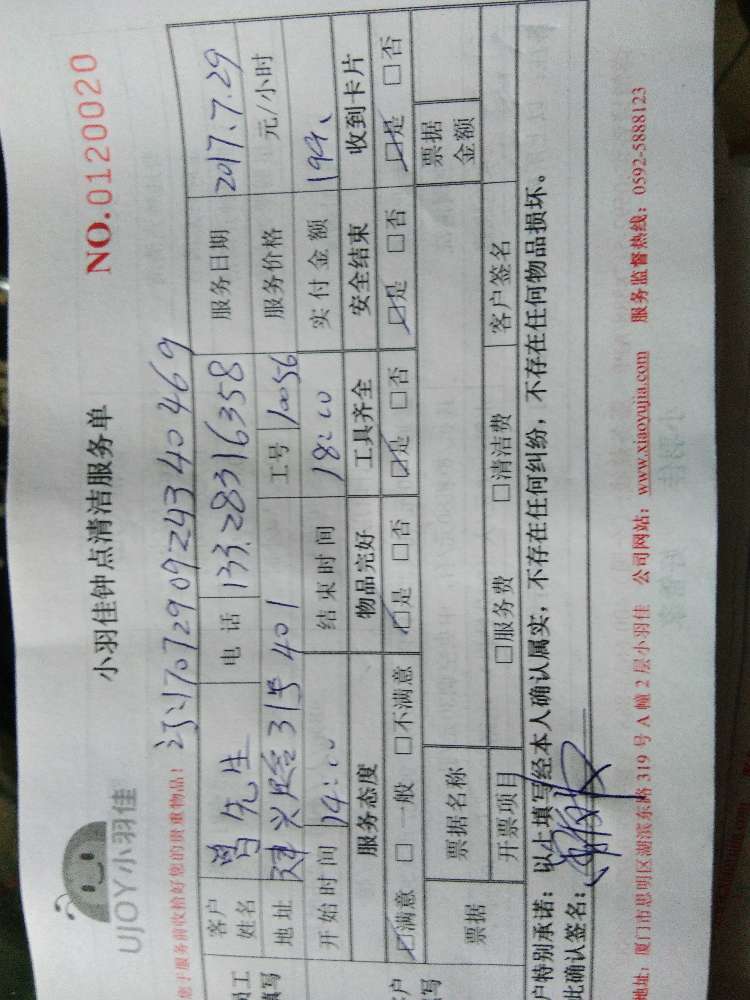 UJOY小羽佳
小羽佳钟点清洁服务单
NO.0120020
您于服务前收拾好您的贵重物品！
170729092434 0469
客户姓名 曾先生 电话 133 28316358 服务日期 2017.7.29
地址 31号401 工号 10056 服务价格 元/小时
开始时间 14:00 结束时间 18:00 实付金额 194
服务态度 物品完好 工具齐全 安全结束 收到卡片
☑满意 □一般 □不满意 ☑是 □否 ☑是 □否 ☑是 □否 ☑是 □否
票据 票据名称 票据金额
开票项目 □服务费 □清洁费 客户签名
户特别承诺：以上填写经本人确认属实，不存在任何纠纷，不存在任何物品损坏。
此确认签名：
地址：厦门市思明区湖滨东路 319 号 A 幢 2 层小羽佳 公司网站：www.xiaoyujia.com 服务监督热线：0592-5888123